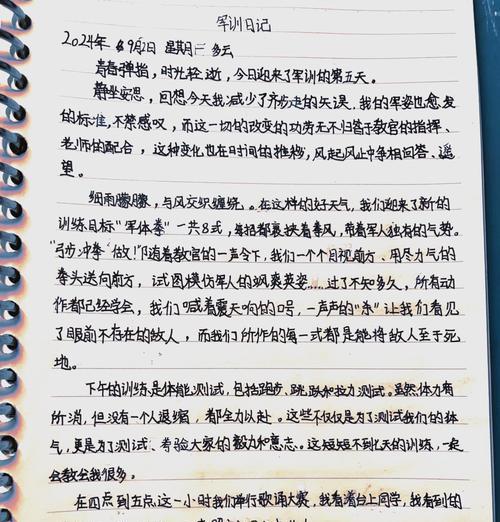 军训日记
2024年 9月2日 星期三 多云
青春弹指，时光轻逝，今日迎来了军训的第五天。
静坐安思，回想今天我减少了齐步走的失误，我的军姿也愈发
的标准，不禁感叹，而这一切的改变的功劳无不归答于教官的指挥、
老师的配合，这种变化也在日时间的推移，风起风止中争相回答、遥
望。
细雨朦朦，与风交织缠绕。在这样的好天气，我们迎来了新的
训练目标"军体拳"一共8式，每招都裹挟着春风，带着军人独有的气势。
"弓步冲拳""做！"随着教官的一声令下，我们一个个目视前方，用尽力气的
拳头送向前方，试图模仿军人的飒爽英姿……过了不知多久，所有动
作都已经学会，我们喊着震天响的口号，一声声的"杀"让我们看见
了眼前不存在的敌人，而我们所作的每一式都是能将敌人至于死
地。
下午的训练是体能测试，包括跑步、跳跃和拉力测试。虽然体力有
所消，但没有一个人退缩，都全力以赴。这些不仅仅是为了测试我们的体
气，更是为了测试、考验大家的毅力和意志。这短短不到七天的训练，一起
会教会我很多。
在四点到五点这一小时我们举行歌诵大赛，我看着台上同学，我看到的